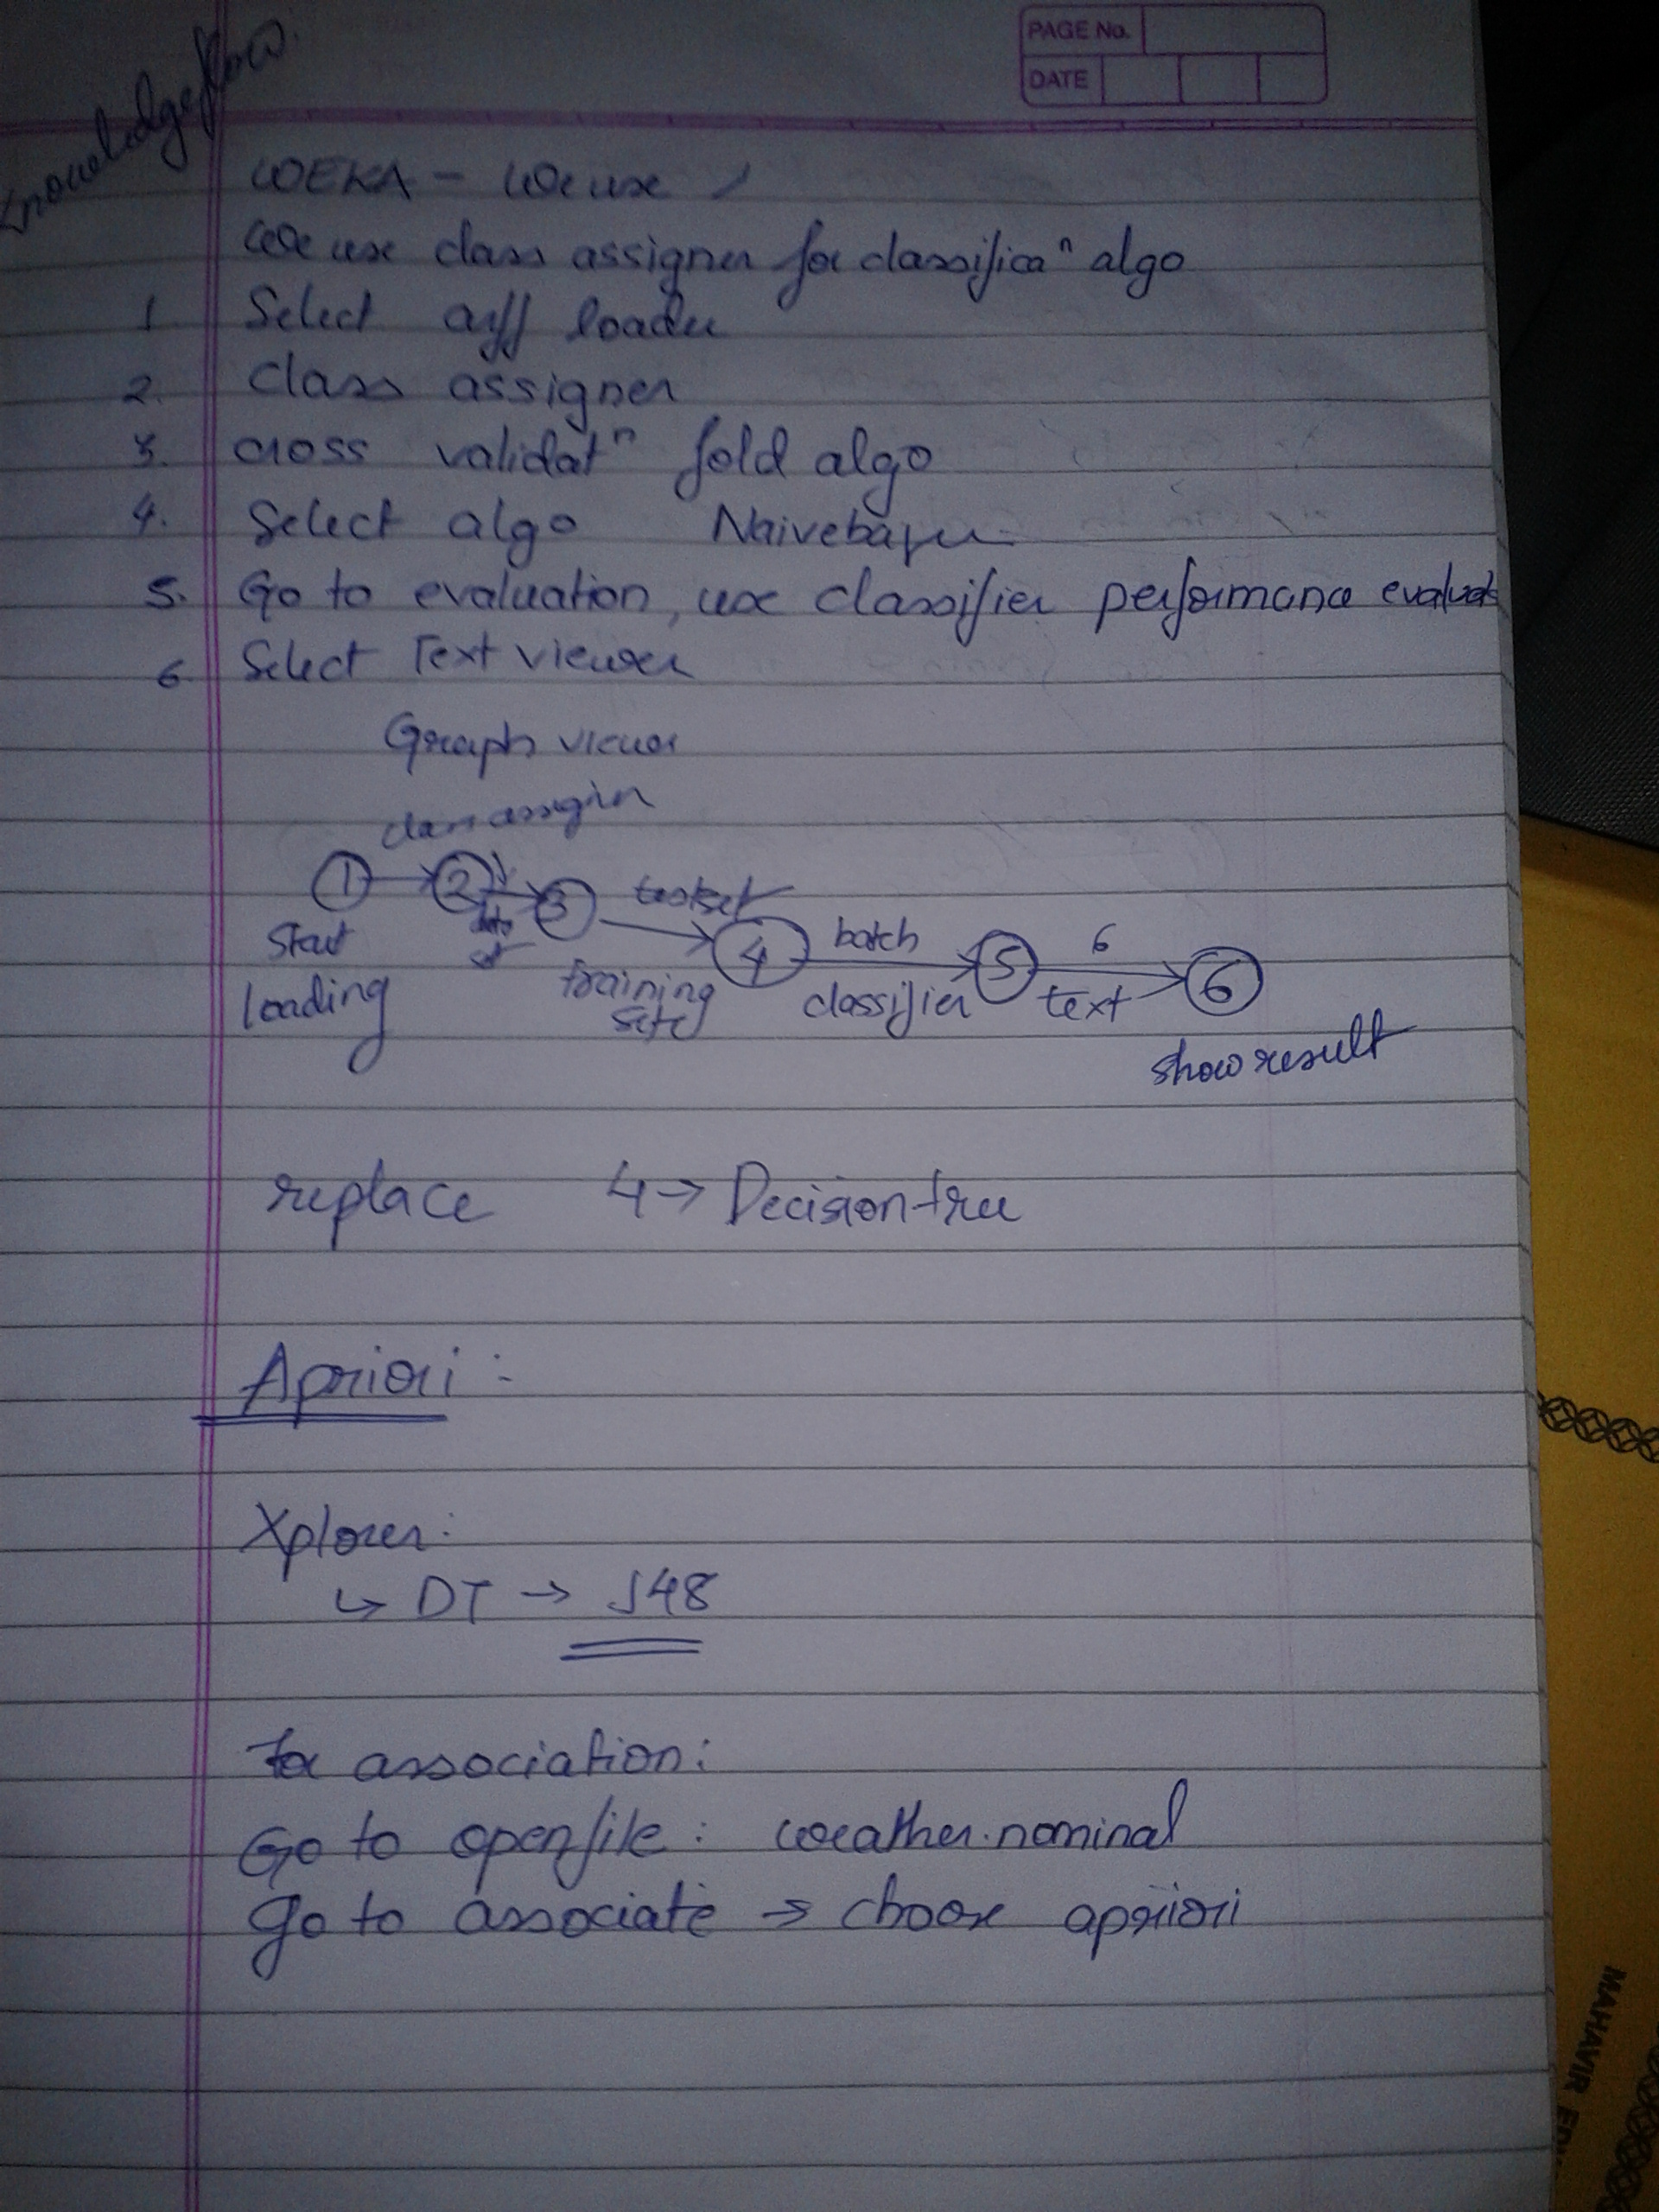 PAGE No.
DATE
Knowledgeflow.
WEKA - We use
We use class assigner for classificaⁿ algo
1. Select arff loader
2. Class assigner
3. cross validatⁿ fold algo
4. Select algo Naivebayes
5. Go to evaluation, use classifier performance evaluat
6 Select Text viewer
Graph viewer
class assigner
1 2 3 testset
Start data set 4 batch 5 6 6
loading training set classifier text
show result
replace 4 → Decision tree
Apriori :
Xplorer:
↳ DT → J48
for association:
Go to openfile : weather.nominal
Go to associate → choose apriori
MAHAVIR